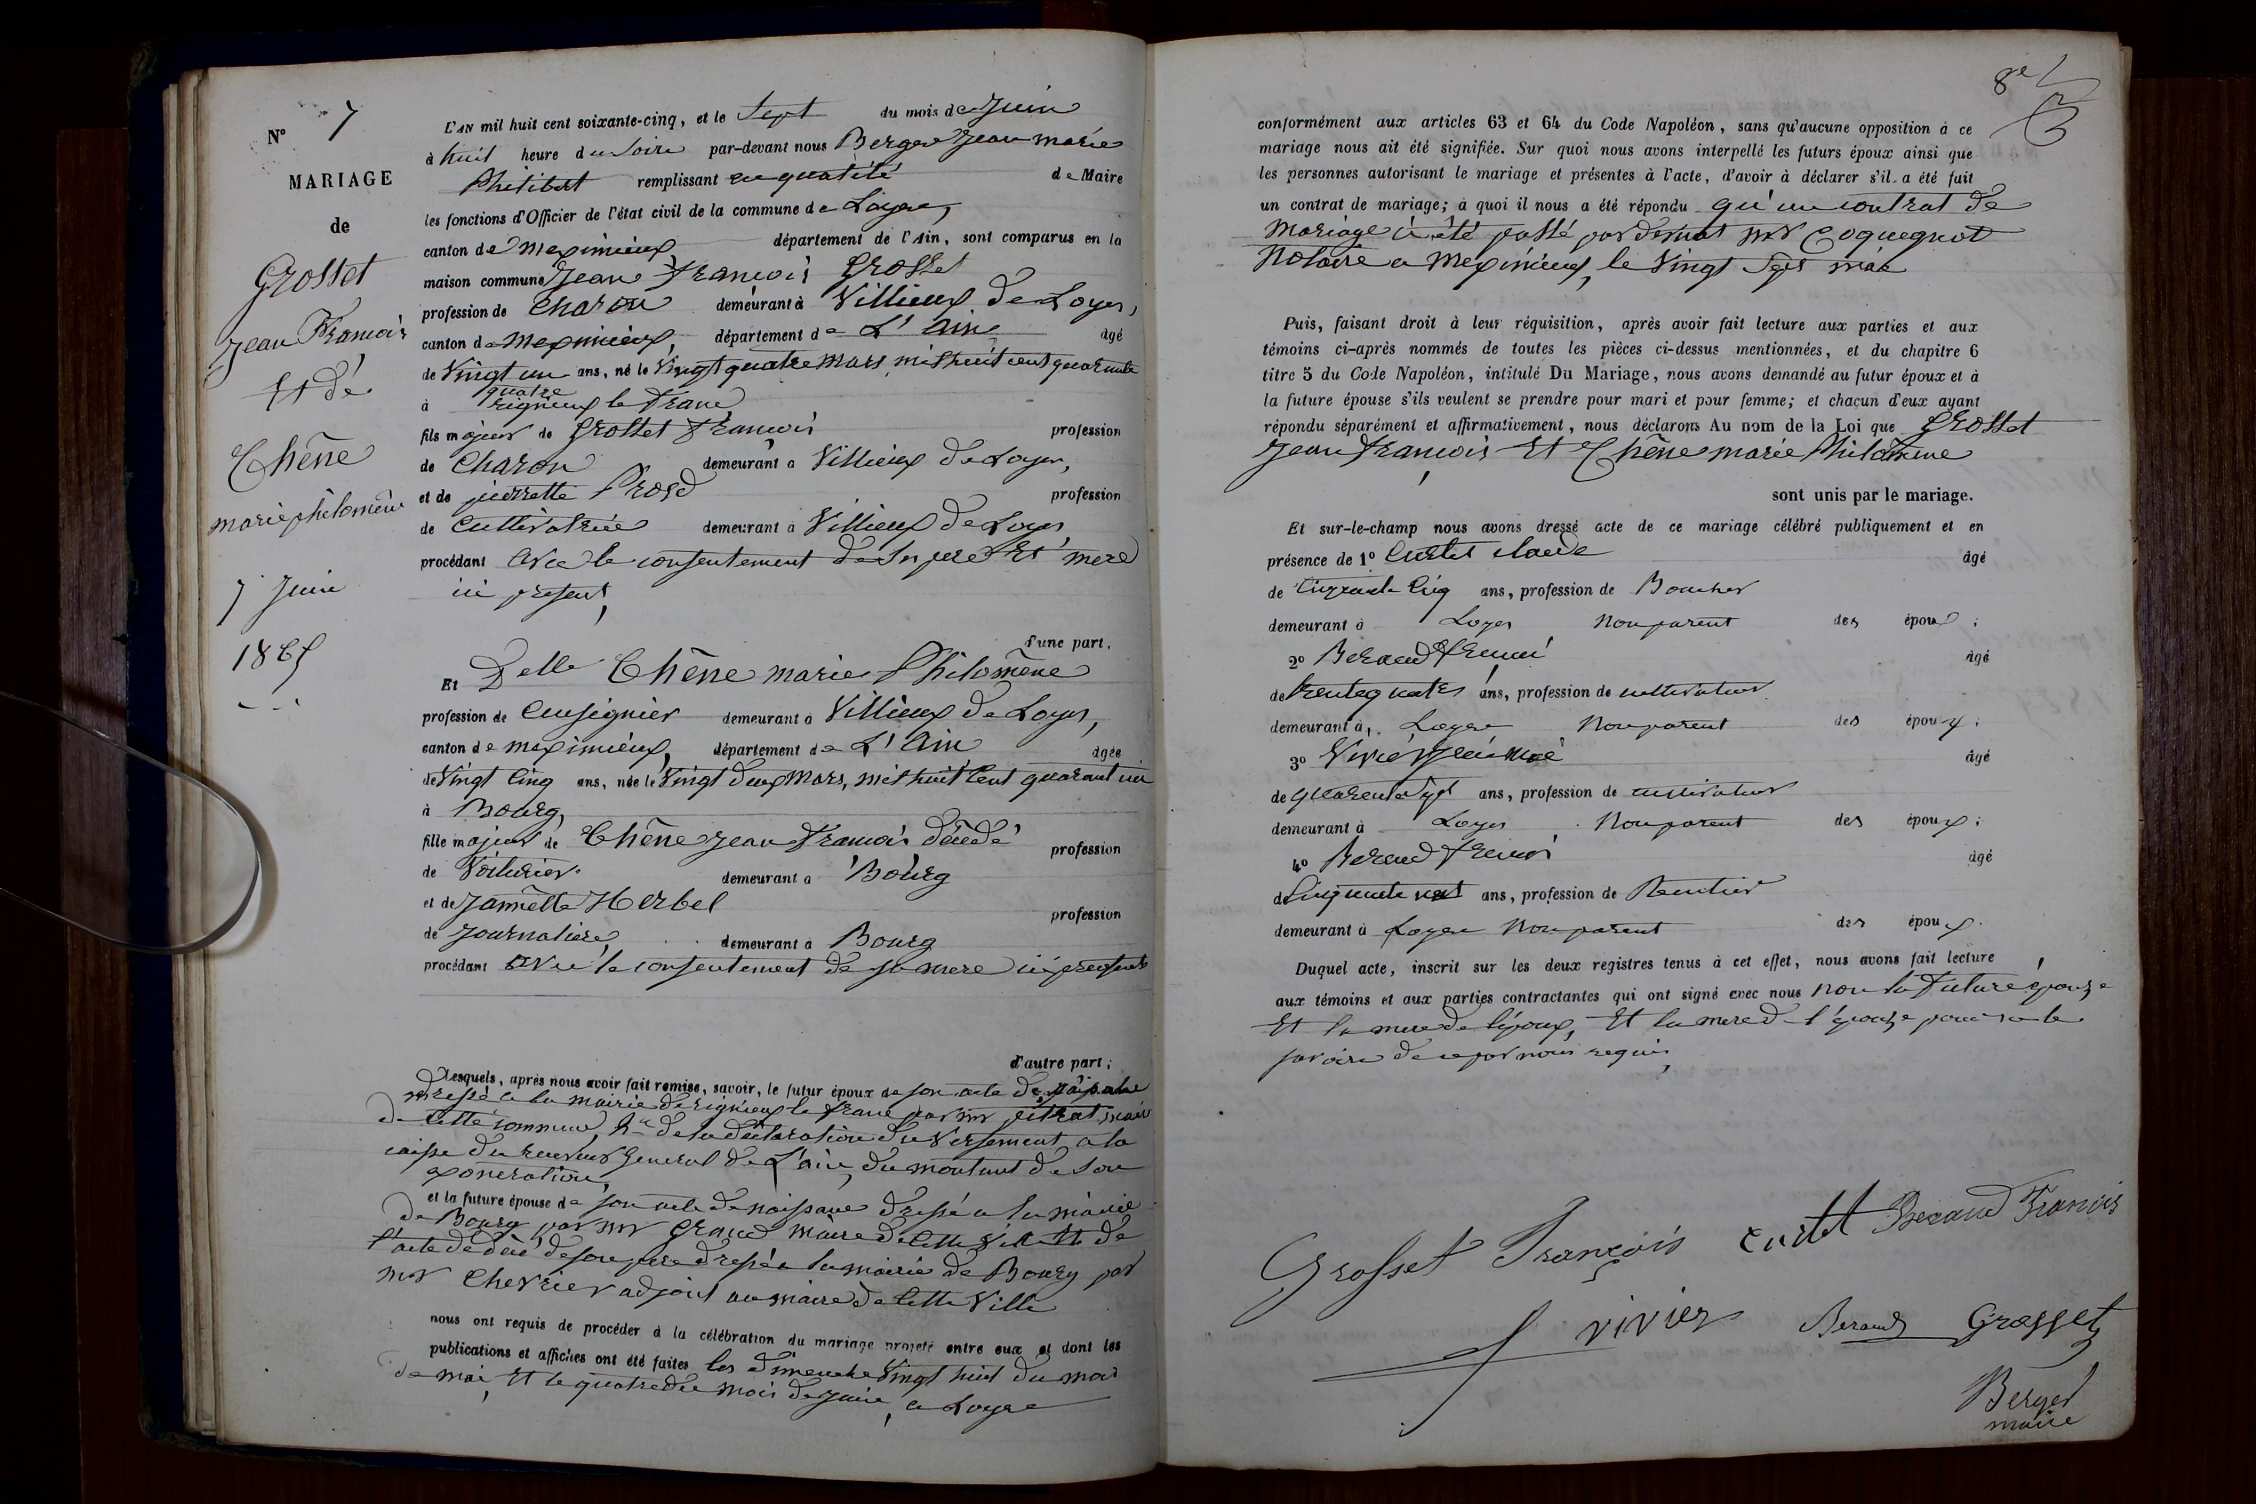 N° 7
MARIAGE
de
Grosset
Jean François
Et de
Chêne
marie philomène
7 Juin
1865
L'AN mil huit cent soixante-cinq, et le Sept du mois de Juin
à huit heure du Soire par-devant nous Berger Jean marie
Philibert remplissant en qualité de Maire
les fonctions d'Officier de l'état civil de la commune de Loyes,
canton de Meximieux, département de l'Ain, sont comparus en la
maison commune Jean François Grosset
profession de Charon demeurant à Villieux De Loyes,
canton de Meximieux, département de L'Ain âgé
de Vingt un ans, né le Vingt quatre Mars mil huit cent quarante
quatre
à rignieux le franc
fils majeur de Grosset François profession
de Charon demeurant à Villieux De Loyes,
et de pierrette profession
de Cultivatrice demeurant à Villieux De Loyes
procédant avec le consentement de Ses pere Et mere
ici present,
d'une part.
Et Delle Chêne marie Philomène
profession de demeurant à Villieux De Loyes,
canton de meximieux, département de L'Ain âgée
de Vingt Cinq ans, née le Vingt deux Mars, mil huit Cent quarant
à Bourg,
fille majeur de Chêne Jean François décédé profession
de Voiturier demeurant à Bourg
et de Jannette Herbel profession
de Journaliere, demeurant à Bourg
procédant avec le consentement de sa mere ici presente
d'autre part;
Lesquels, après nous avoir fait remise, savoir, le futur époux de son acte De naissance
dressé a la mairie de rignieux le franc par mr maire
de Cette commune, de la déclaration du Versement a la
caisse du receveur General de L'ain, du montant de Son
exoneration,
et la future épouse de son acte de naissance dressé a la mairie
de Bourg par mr maire de Cette Ville Et de
l'acte de décé de son pere dressé a la mairie de Bourg par
mr Chevrier adjoint au maire de Cette Ville
nous ont requis de procéder à la célébration du mariage projeté entre eux et dont les
publications et affiches ont été faites les dimanche Vingt huit du mois
de mai, Et le quatre du mois de Juin, a Loyes
8e
conformément aux articles 63 et 64 du Code Napoléon, sans qu'aucune opposition à ce
mariage nous ait été signifiée. Sur quoi nous avons interpellé les futurs époux ainsi que
les personnes autorisant le mariage et présentes à l'acte, d'avoir à déclarer s'il a été fait
un contrat de mariage; à quoi il nous a été répondu qu'un contrat de
Mariage a été passé par devant mr Coquegniot
Notaire a Meximieux, le Vingt Sept mai
Puis, faisant droit à leur réquisition, après avoir fait lecture aux parties et aux
témoins ci-après nommés de toutes les pièces ci-dessus mentionnées, et du chapitre 6
titre 5 du Code Napoléon, intitulé Du Mariage, nous avons demandé au futur époux et à
la future épouse s'ils veulent se prendre pour mari et pour femme; et chacun d'eux ayant
répondu séparément et affirmativement, nous déclarons Au nom de la Loi que Grosset
Jean François Et Chêne marie Philomène
sont unis par le mariage.
Et sur-le-champ nous avons dressé acte de ce mariage célébré publiquement et en
présence de 1° Curtet claude âgé
de Cinquante Cinq ans, profession de Boucher
demeurant à Loyes Non parent des époux;
2° Beraud âgé
de trente quatre ans, profession de cultivateur
demeurant à, Loyes Non parent des époux;
3° Vivier âgé
de quarente Sept ans, profession de cultivateur
demeurant à Loyes Non parent des époux;
4° Beraud François âgé
de Cinquante ans, profession de Rentier
demeurant à Loyes Non parent des époux.
Duquel acte, inscrit sur les deux registres tenus à cet effet, nous avons fait lecture
aux témoins et aux parties contractantes qui ont signé avec nous non la future épouse
Et la mere de l'époux, Et la mere de l'épouse pour ne le
savoire de ce par nous requis,
Grosset François Curtet Beraud François
Vivier Beraud Grosset
Berger
maire